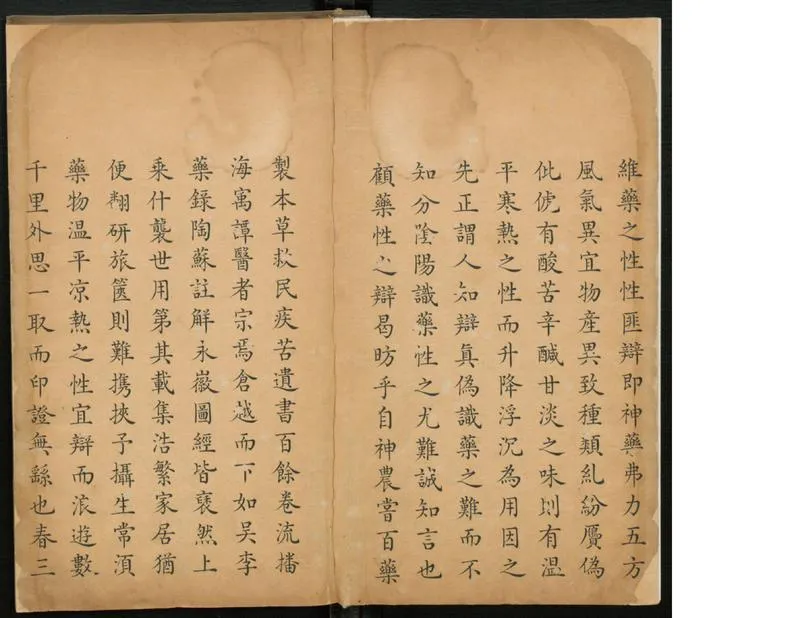 維藥之性性匪辯即神藥弗力五方
風氣異宜物產異致種類糺紛贗偽
仳俿有酸苦辛鹹甘淡之味則有溫
平寒熱之性而升降浮沉為用因之
先正謂人知辯真偽識藥之難而不
知分隂陽識藥性之尤難誠知言也
顧藥性之辯曷昉乎自神農嘗百藥
製本草救民疾苦遺書百餘卷流播
海寓譚醫者宗焉倉越而下如吳李
藥錄陶蘇註解永徽圖經皆裒然上
乘什襲世用第其載集浩繁家居猶
便翱研旅篋則難携挾予攝生常湏
藥物溫平凉熱之性宜辯而浪遊數
千里外思一取而印證無繇也春三